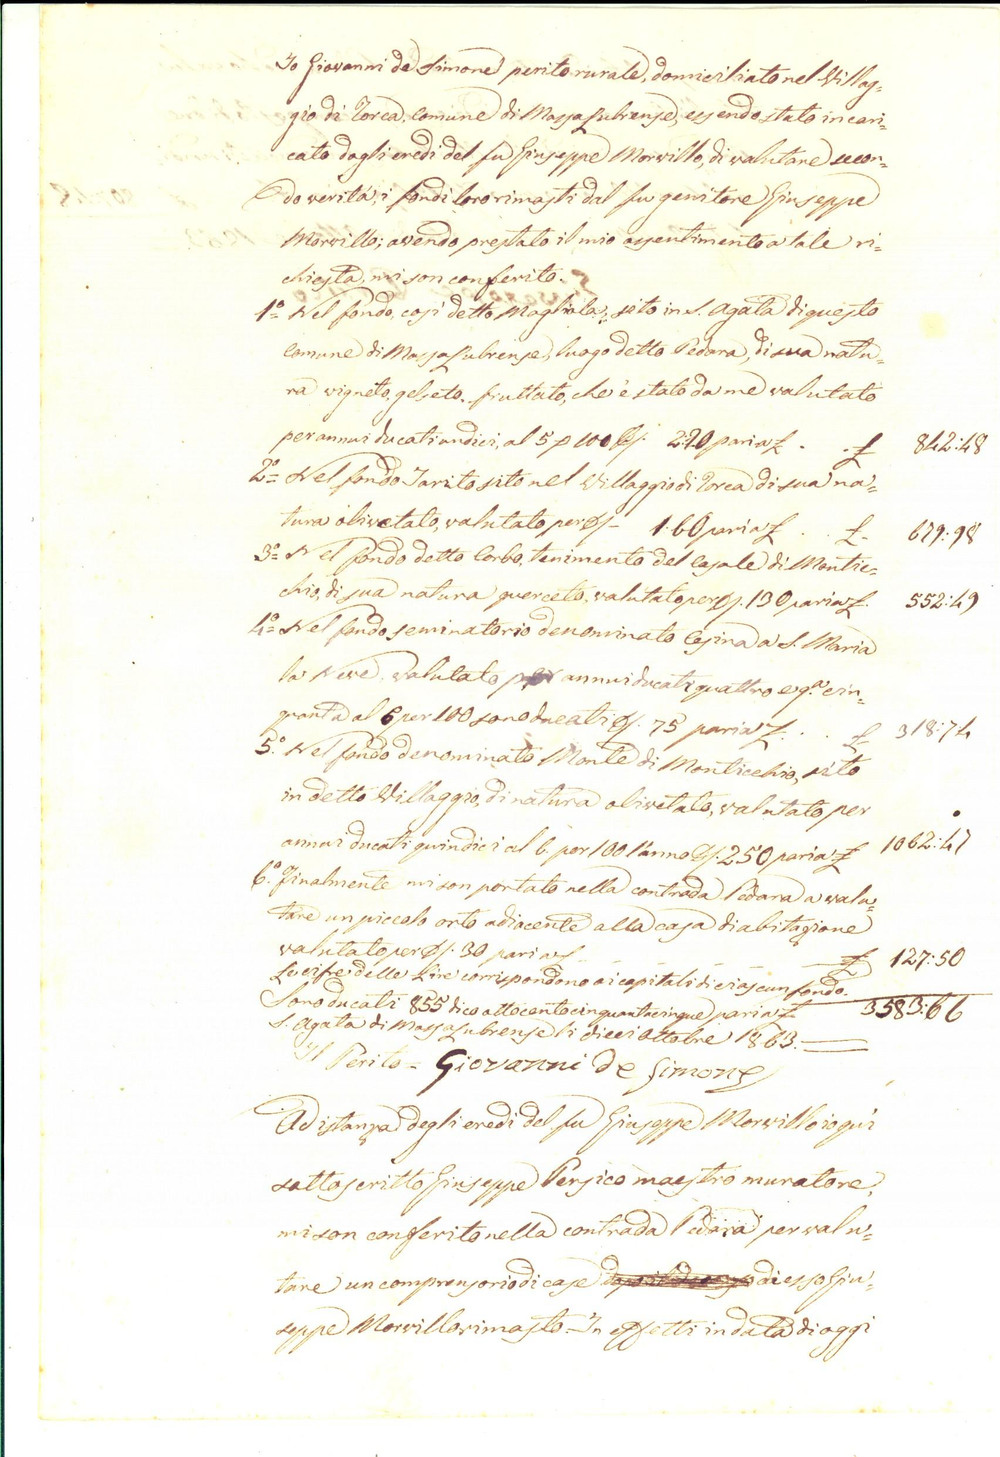 Io Giovanni de Simone perito rurale, domiciliato nel Villag=
gio di Torca, Comune di Massa Lubrense, essendo stato incari=
cato dagli eredi del fu Giuseppe Morvillo, di valutare secon=
do verità, i fondi loro rimasti dal fu genitore Giuseppe
Morvillo; avendo prestato il mio assentimento a tale ri=
chiesta, mi son conferito.
1.° Nel fondo, così detto Magliola, sito in S. Agata di questo
Comune di Massa Lubrense, luogo detto Pedara, di sua natu=
ra vigneto, gelseto, fruttato, che è stato da me valutato
per annui ducati undici, al 5 p 100 D. 220 pari a £ . . £ 842:48
2.° Nel fondo Tarito sito nel Villaggio di Torca di sua na=
tura olivetato, valutato per D. 160 pari a £ . . £. 679:98
3.° Nel fondo detto Corbo, tenimento del Casale di Montic=
chio, di sua natura querceto, valutato per D. 130 pari a £. 552:49
4.° Nel fondo seminatorio denominato Casina a S. Maria
la Neve, valutato per annui ducati quattro e g.ª cin=
quanta al 6 per 100 sono ducati D. 75 pari a £. . . £ 318:74
5.° Nel fondo denominato Monte di Monticchio, sito
in detto Villaggio, di natura olivetato, valutato per
annui ducati quindici al 6 per 100 l'anno D. 250 pari a £ 1062:47
6.° Finalmente mi son portato nella contrada Pedara a valu=
tare un piccolo orto adiacente alla casa di abitazione
valutato per D. 30 pari a £ £ 127:50
Le cifre delle Lire corrispondono ai capitali di ciascun fondo.
Sono ducati 855 dico ottocentocinquantacinque pari a £ 3583:66
S. Agata di Massa Lubrense li dieci Ottobre 1863.
Il Perito = Giovanni de Simone
Ad istanza degli eredi del fu Giuseppe Morvillo io qui
sottoscritto Giuseppe Persico maestro muratore,
mi son conferito nella contrada Pedara per valu=
tare un comprensorio di case di esso Giu=
seppe Morvillo rimasto. In effetti in data di oggi